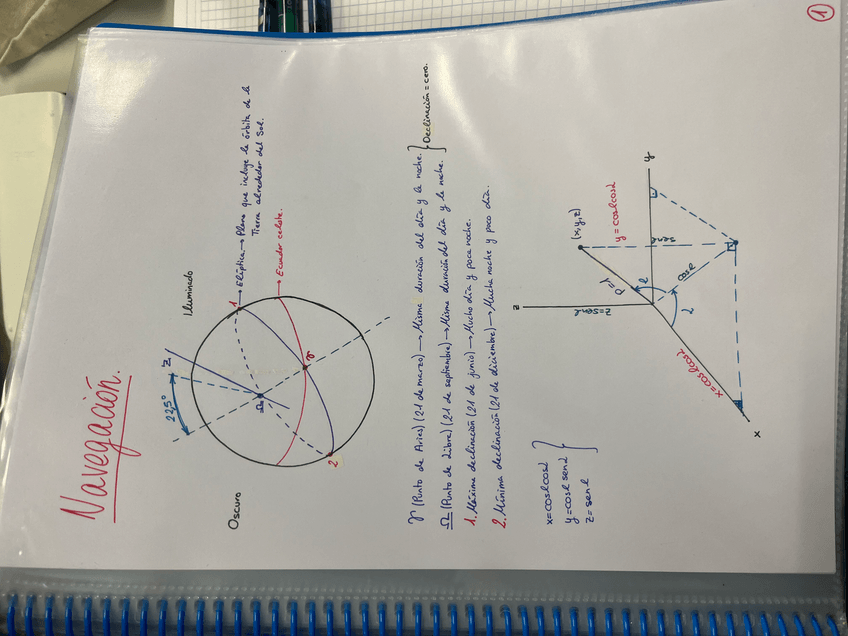 1
Navegación.
Oscuro
Iluminado
22,5°
Z
1
Elíptica → Plano que incluye la órbita de la
Tierra alrededor del Sol.
Ecuador celeste.
Ω
♈
2
♈ (Punto de Aries) (21 de marzo) → Misma duración del día y la noche.
Ω (Punto de Libra) (21 de septiembre) → Misma duración del día y la noche.
} Declinación = cero.
1. Máxima declinación (21 de junio) → Mucho día y poca noche.
2. Mínima declinación (21 de diciembre) → Mucha noche y poco día.
x = cosl cosλ
y = cosl senλ
z = senl
z
z = senl
R = 1
(x, y, z)
y = coslcosλ
y
l
cosl
λ
x = coslcosλ
x